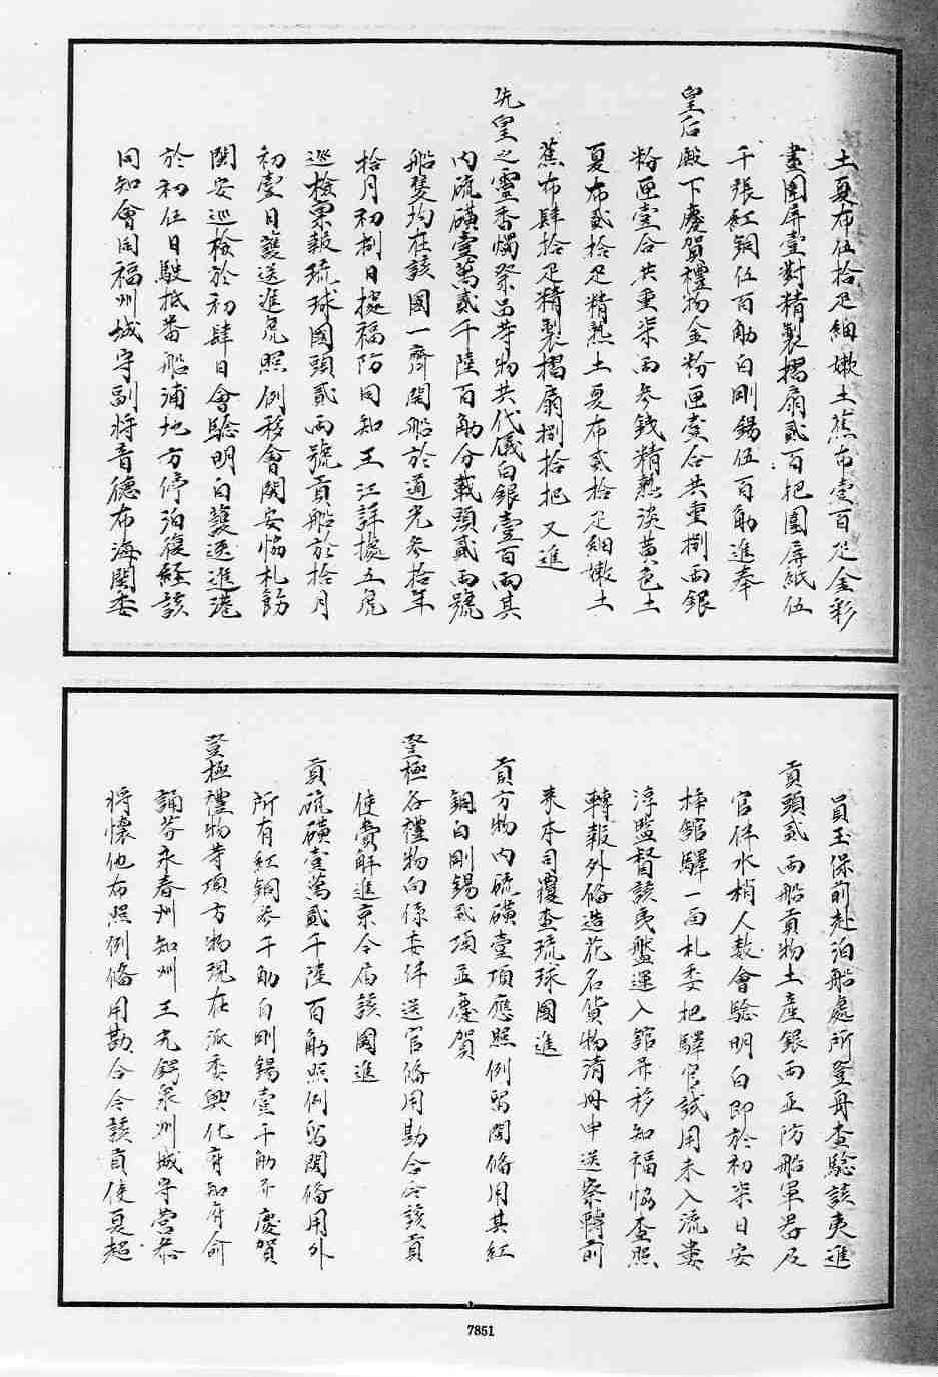 土夏布伍拾疋細嫩土蕉布壹百疋金彩
畫圍屏壹對精製摺扇貳百把圍屏紙伍
千張紅銅伍百觔白剛錫伍百觔進奉
皇后殿下慶賀禮物金粉匣壹合共重捌兩銀
粉匣壹合共重柒兩參錢精熟淡黃色土
夏布貳拾疋精熟土夏布貳拾疋細嫩土
蕉布肆拾疋精製摺扇捌拾把又進
先皇之靈香燭祭品等物共代儀白銀壹百兩其
內硫磺壹萬貳千陸百觔分載頭貳兩號
船隻均在該國一齊開船於道光參拾年
拾月初捌日據福防同知王江詳據五虎
巡檢稟報琉球國頭貳兩號貢船於拾月
初壹日護送進虎照例移會閩安協札飭
閩安巡檢於初肆日會驗明白護送進港
於初伍日駛抵番船浦地方停泊復經該
同知會同福州城守副將音德布海關委
員玉保前赴泊船處所登舟查驗該夷進
貢頭貳兩船貢物土產銀兩並防船軍器及
官伴水梢人數會驗明白即於初柒日安
插館驛一面札委把驛官試用未入流婁
淳監督該夷盤運入館并移知福協查照
轉報外俻造花名貨物清冊申送察轉前
來本司覆查琉球國進
貢方物內硫磺壹項應照例留閩俻用其紅
銅白剛錫貳項並慶賀
登極各禮物向係委伴送官俻用勘合令該貢
使賫解進京今屆該國進
貢硫磺壹萬貳千陸百觔照例留閩俻用外
所有紅銅參千觔白剛錫壹千觔并慶賀
登極禮物等項方物現在派委興化府知府俞
誦芬永春州知州王光鍔泉州城守營參
將懷他布照例俻用勘合令該貢使夏超
7851